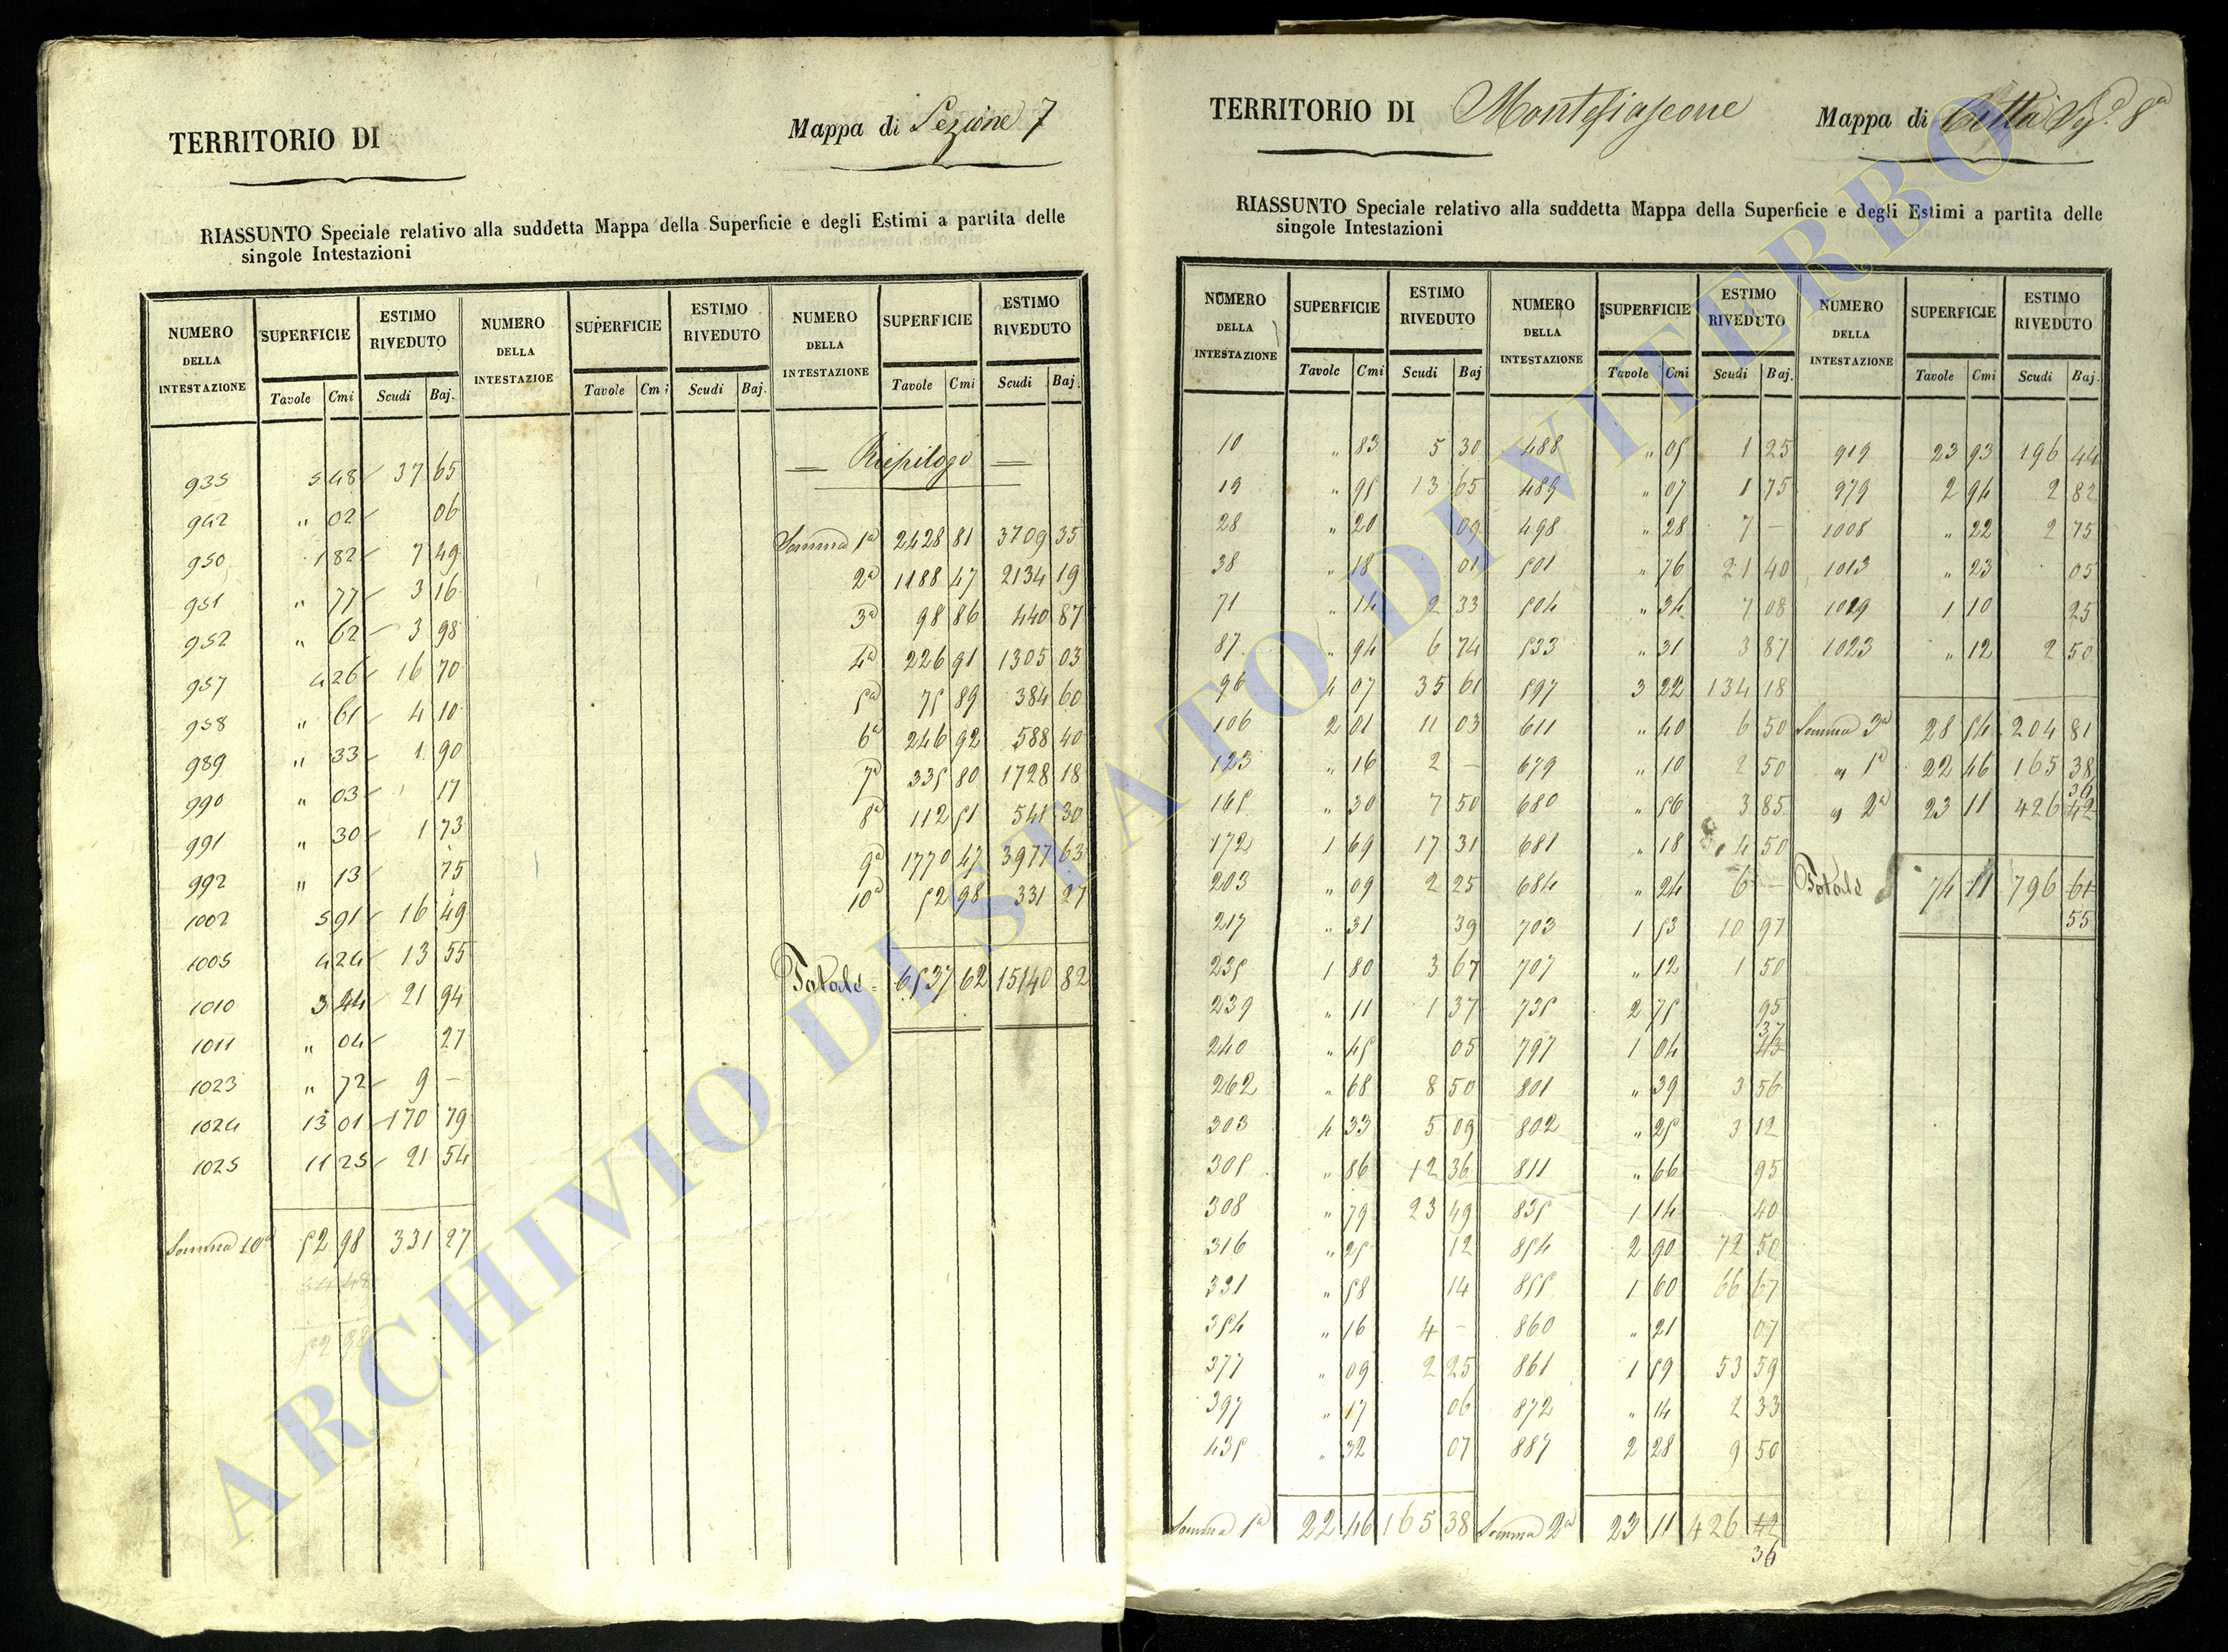 TERRITORIO DI
Mappa di Sezione 7
RIASSUNTO Speciale relativo alla suddetta Mappa della Superficie e degli Estimi a partita delle
singole Intestazioni
NUMERO DELLA INTESTAZIONE SUPERFICIE ESTIMO RIVEDUTO NUMERO DELLA INTESTAZIOE SUPERFICIE ESTIMO RIVEDUTO NUMERO DELLA INTESTAZIONE SUPERFICIE ESTIMO RIVEDUTO
Tavole Cmi Scudi Baj. Tavole Cmi Scudi Baj. Tavole Cmi Scudi Baj.
935 5 48 37 65
942 " 02 06
950 1 82 7 49
951 " 77 3 16
952 " 62 3 98
957 4 26 16 70
958 " 61 4 10
989 " 33 1 90
990 " 03 17
991 " 30 1 73
992 " 13 75
1002 5 91 16 49
1005 4 24 13 55
1010 3 44 21 94
1011 " 04 27
1023 " 72 9 –
1024 13 01 170 79
1025 11 25 21 54
Somma 10a 52 98 331 27
52 98
— Riepilogo —
Somma 1a 2428 81 3709 35
2a 1188 47 2134 19
3a 98 86 440 87
4a 226 91 1305 03
5a 75 89 384 60
6a 246 92 588 40
7a 335 80 1728 18
8a 112 51 541 30
9a 1770 47 3977 63
10a 52 98 331 27
Totale = 6537 62 15140 82
TERRITORIO DI Montefiascone
Mappa di Città 8a
RIASSUNTO Speciale relativo alla suddetta Mappa della Superficie e degli Estimi a partita delle
singole Intestazioni
NUMERO DELLA INTESTAZIONE SUPERFICIE ESTIMO RIVEDUTO NUMERO DELLA INTESTAZIONE SUPERFICIE ESTIMO RIVEDUTO NUMERO DELLA INTESTAZIONE SUPERFICIE ESTIMO RIVEDUTO
Tavole Cmi Scudi Baj Tavole Cmi Scudi Baj. Tavole Cmi Scudi Baj.
10 " 83 5 30 488 " 05 1 25 919 23 93 196 44
19 " 95 13 65 489 " 07 1 75 979 2 94 2 82
28 " 20 09 498 " 28 7 – 1008 " 22 2 75
38 " 18 01 501 " 76 21 40 1013 " 23 05
71 " 14 2 33 504 " 34 7 08 1019 1 10 25
87 " 94 6 74 533 " 31 3 87 1023 " 12 2 50
96 4 07 35 61 597 3 22 134 18
106 2 01 11 03 611 " 40 6 50 Somma 3a 28 54 204 81
123 " 16 2 – 679 " 10 2 50 " 1a 22 46 165 38
165 " 30 7 50 680 " 56 3 85 " 2a 23 11 426 42 36
172 1 69 17 31 681 " 18 4 50
203 " 09 2 25 684 " 24 6 – Totale 74 11 796 61
217 " 31 39 703 1 53 10 97 55
235 1 80 3 67 707 " 12 1 50
239 " 11 1 37 735 2 75 95
240 " 45 05 797 1 04 43 37
262 " 68 8 50 801 " 39 3 56
303 4 33 5 09 802 " 25 3 12
305 " 86 12 36 811 " 66 95
308 " 79 23 49 835 1 14 40
316 " 25 12 854 2 90 72 50
331 " 58 14 855 1 60 66 67
354 " 16 4 – 860 " 21 07
377 " 09 2 25 861 1 59 53 59
397 " 17 06 872 " 14 2 33
435 " 32 07 887 2 28 9 50
Somma 1a 22 46 165 38 Somma 2a 23 11 426 42
36
ARCHIVIO DI STATO DI VITERBO